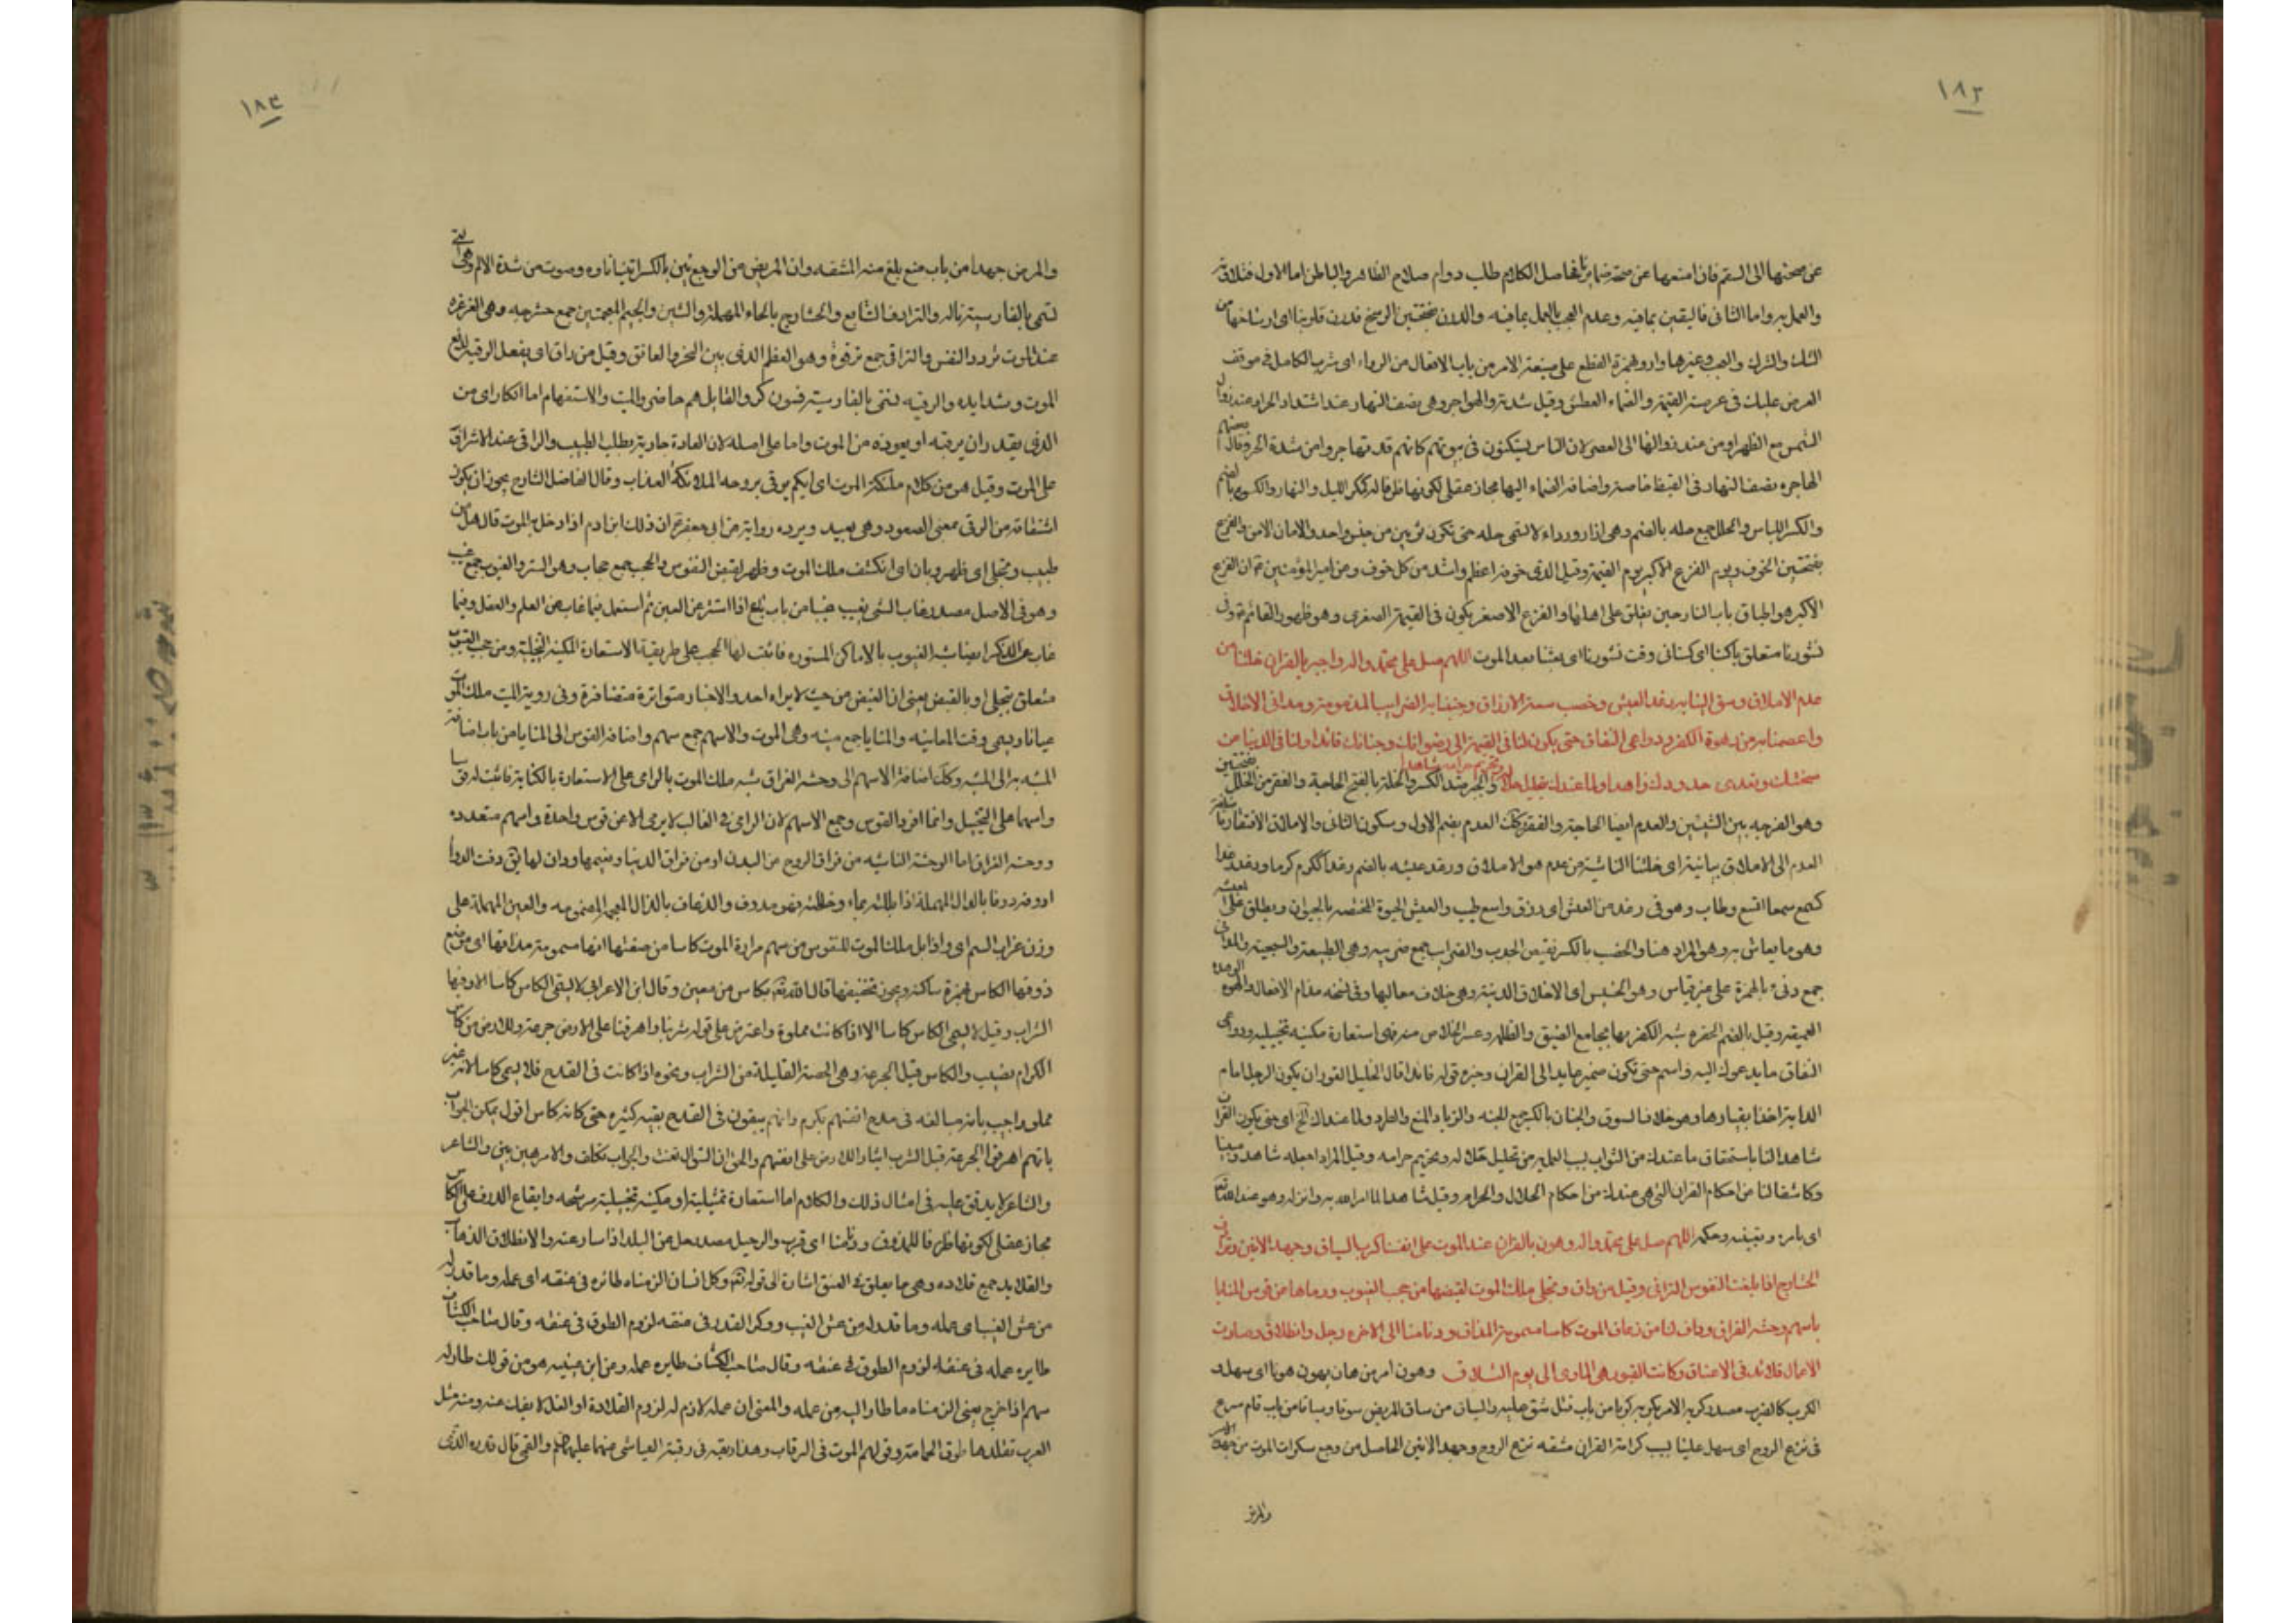 ١٨٢
عن صحتها الى السقم فان امنعها عن صحة ضمايرنا حاصل الكلام طلب دوام صلاح الظاهر والباطن اما الاول فبتلاوته
والعمل به واما الثانى فاليقين بما فيه وعدم العجب بالعمل بما فيه والدرن بفتحتين الوسخ فدرن قلوبنا اى اوساخها من
الشك والشرك والعجب وغيرها وارو بهمزة القطع على صيغة الامر من باب الافعال من الرواء اى شرب الكامل فى موقف
العرض عليك فى عرصة القيمة والظماء العطش وقيل شدته والهواجر وهى نصف النهار عند اشتداد الحر او عند زوال
الشمس مع الظهر او من عند زوالها الى العصر لان الناس يستكنون فى بيوتهم كانهم قد تهاجروا من شدة الحر وقال بعضهم
الهاجره نصف النهار فى القيظ خاصة واضافة الظماء اليها مجاز عقلى لكونها ظرفا له كمكر الليل والنهار والكسوة بالضم
والكسر اللباس والحلل جمع حله بالضم وهى ازار ورداء لا تسمى حله حتى تكون ثوبين من جنس واحد والامان الامن والفزع
بفتحتين الخوف ويوم الفزع الاكبر يوم القيمة وقيل الذى خوفه اعظم واشد من كل خوف وعن امير المؤمنين ع ان الفزع
الاكبر هو اطباق باب النار حين يغلق على اهلها والفزع الاصغر يكون فى القيمة الصغرى وهو ظهور القائم ع وفى
نشورنا متعلق باكسنا اى كسنا فى وقت نشورنا اى بعثنا بعد الموت اللهم صل على محمد واله واجبر بالقران خلتنا من
عدم الاملاق وسق الينا به رغد العيش وخصب سعة الارزاق وجنبنا به الضرايب المذمومة ومدانى الاخلاق
واعصمنا به من هوة الكفر ودواعى النفاق حتى يكون لنا فى القيمة الى رضوانك وجنانك قائدا ولنا فى الدنيا عن
سخطك وتعدى حدودك ذائدا ولما عندك بتحليل حلاله وتحريم حرامه شاهدا والجبر ضد الكسر والخلة بالفتح الحاجة والفقر من الخلل بفتحتين
وهو الفرجه بين الشيئين والعدم ايضا الحاجة والفقر وكك العدم بضم الاول وسكون الثانى والاملاق الافتقار واضافة
العدم الى الاملاق بيانية اى خلتنا الناشية من عدم هو الاملاق ورغد عيشه بالضم رغدا ككرم كرما ورغد رغدا
كسمع سمعا اتسع وطاب وهو فى رغد من العيش اى رزق واسع طيب والعيش الحيوة المختصه بالحيوان ويطلق على المعيشه
وهو ما يعاش به وهو المراد هنا والخصب بالكسر نقيض الجدب والضرايب جمع ضريبه وهى الطبيعة والسجية والمدانى
جمع دنىء بالهمزة على غير قياس وهو الخسيس اى الاخلاق الدنية وهى خلاف معاليها وفى نسخه مذام الافعال والهوة الوهدة
العميقه وقيل بالضم الحفره شبه الكفر بها بجامع الضيق والظلمه وعسر الخلاص منه فهى استعارة مكنيه تخييليه ودواعى
النفاق ما يدعوك اليه واسم حتى تكون ضمير عايد الى القران وخبره قوله قائدا قال الخليل القود ان يكون الرجل امام
الدابة اخذا بقيادها وهو خلاف السوق والجنان بالكسر جمع الجنه والذياد المنع والطرد ولما عندك الخ اى حتى يكون القران
شاهدا لنا باستحقاق ما عندك من الثواب بسبب العمل به من تحليل حلاله وتحريم حرامه وقيل المراد اجعله شاهدا ومبينا
وكاشفا لنا من احكام القران التى هى عندك من احكام الحلال والحرام وقيل شاهدا لما امر الله به وانزله وهو عند الله
اى بامره وتقيفه وحكمه اللهم صل على محمد واله وهون بالقران عند الموت على انفسنا كرب السياق وجهد الانين وترادف
الحشارج اذا بلغت النفوس التراقى وقيل من راق وتجلى ملك الموت لقبضها من حجب الغيوب ورماها عن قوس المنايا
باسهم وحشة الفراق وداف لنا من زعاف الموت كاسا مسمومة المذاق ودنا منا الى الاخرة رحيل وانطلاق وصارت
الاعمال قلائد فى الاعناق وكانت القبور هى الماوى الى يوم التلاق وهون امر من هان يهون هونا اى سهل و
الكرب كالضرب مصدر كربه الامر يكربه كربا من باب قتل شق عليه والسياق من ساق المريض سوقا وسياقا من باب قام شرع
فى نزع الروح اى سهل علينا بسبب كرامة القران مشقه نزع الروح وجهد الانين الحاصل من وجع سكرات الموت من جهد
والمرض
١٨٣
والمرض جهدا من باب منع بلغ منه المشقه وان المريض من الوجع يئن بالكسر انينا تاوه وصوت من شدة الالم وهى التى
تسمى بالفارسية ناله والترادف التتابع والحشارج بالحاء المهملة والشين والجيم المعجمتين جمع حشرجه وهى الغرغره
عند الموت وتردد النفس والتراقى جمع ترقوة وهو العظم الذى بين النحر والعاتق وقيل من راق اى يفعل الرقيه لدفع
الموت وشدايده والرقيه تسمى بالفارسية فسون كر والقايل هم حاضروا الميت والاستفهام اما انكار اى من
الذى يقدر ان يرقيه او يعوذه من الموت واما على اصله لان العادة جارية بطلب الطبيب والراقى عند الاشراف
على الموت وقيل هو من كلام ملئكة الموت اى ايكم يرقى بروحه الملائكة العذاب وقال الفاضل الشارح يجوز ان يكون
اشتقاقه من الرقى بمعنى الصعود وهى بعيد ويرده رواية عن ابى جعفر ع ان ذلك ابن ادم اذا دخل به الموت قال هل من
طبيب وتجلى اى ظهر وبان اى انكشف ملك الموت وظهر لقبض النفوس والحجب جمع حجاب وهو الستر والغيوب جمع غيب
وهو فى الاصل مصدر غاب الشى يغيب غيبا من باب باع اذا استتر عن العين ثم استعمل فيما غاب عن العلم والعقل وفيما
غاب عن الذكر ايضا شبه الغيوب بالاماكن المستوره فاثبت لها الحجب على طريقة الاستعارة المكنيه التخييلية ومن حجب الغيوب
متعلق بتجلى او بالقبض يعنى ان القبض من حيث لا يراه احد والاخبار متواترة متضافرة وفى روية الميت ملك الموت
عيانا ويسمى وقت المعاينه والمنايا جمع منيه وهى الموت والاسهم جمع سهم واضافة القوس الى المنايا من باب اضافة
المشبه به الى المشبه وكك اضافة الاسهم الى وحشة الفراق شبه ملك الموت بالرامى على الاستعارة بالكناية فاثبت له قوسا
واسهما على التخييل وانما افرد القوس وجمع الاسهم لان الرامى فى الغالب لا يرمى الا عن قوس واحدة واسهم متعدده
ووحشة الفراق اما الوحشة الناشيه من فراق الروح عن البدن او من فراق الدنيا ونعيمها وداف لها يق دفت الدواء
ادوفه دوفا بالدال المهملة اذا بللته بماء وخلطته فهو مدوف والذعاف بالذال المعجمه المضمومه والعين المهملة على
وزن غراب السم اى واذا بل ملك الموت للنفوس من سهم مرارة الموت كاسا من صفتها انها مسمومة مذاقها اى موضع
ذوقها الكاس بهمزة ساكنه ويجوز تخفيفها قال الله تعالى بكاس من معين وقال ابن الاعرابى لا يسمى الكاس كاسا الا وفيها
الشراب وقيل لا يسمى الكاس كاسا الا اذا كانت مملوة واعترض على قوله شربنا واهرقنا على الارض جرعة وللارض من كاس
الكرام نصيب والكاس قبل الجرعة وهى الحصة القليلة من الشراب ونحوه اذا كانت فى القدح فلا يسمى كاسا لانه غير
مملو واجيب بانه مبالغه فى مدح انفسهم بكرم وانهم يبقون فى القدح بقيه كثيره حتى كانه كاس اقول يمكن الجواب
بانهم اهرقوا الجرعة قبل الشرب ايثارا للارض على انفسهم والحق ان السؤال تعنت والجواب تكلف والامر هين بين والشاعر
والشاعر لا يدقق عليه فى امثال ذلك والكلام اما استعارة تمثيلية او مكنيه تخييلية مرشحه وايقاع الدوف على الكاس
مجاز عقلى لكونها ظرفا للمدوف ودنا منا اى قرب والرحيل مصدر رحل عن البلد اذا سار عنه والانطلاق الذهاب
والقلايد جمع قلاده وهى ما يعلق فى العنق اشارة الى قوله تعالى وكل انسان الزمناه طائره فى عنقه اى عمله وما قدر له
من عش الغيب اى عمله وما قدر له من عش الغيب ووكر القدر فى عنقه لزوم الطوق فى عنقه وقال صاحب الكشاف
طايره عمله فى عنقه لزوم الطوق فى عنقه وقال صاحب الكشاف طايره عمله وعن ابن عيينه هو من قولك طار له
سهم اذا خرج يعنى الزمناه ما طار اليه من عمله والمعنى ان عمله لازم له لزوم القلادة او الغل لا يفك عنه ومنه مثل
العرب تقلدها طوق الحمامة وقولهم الموت فى الرقاب وهذا ربقه فى رقبته العياشى عنهما عليهما السلام والقمى قال قدره الذى